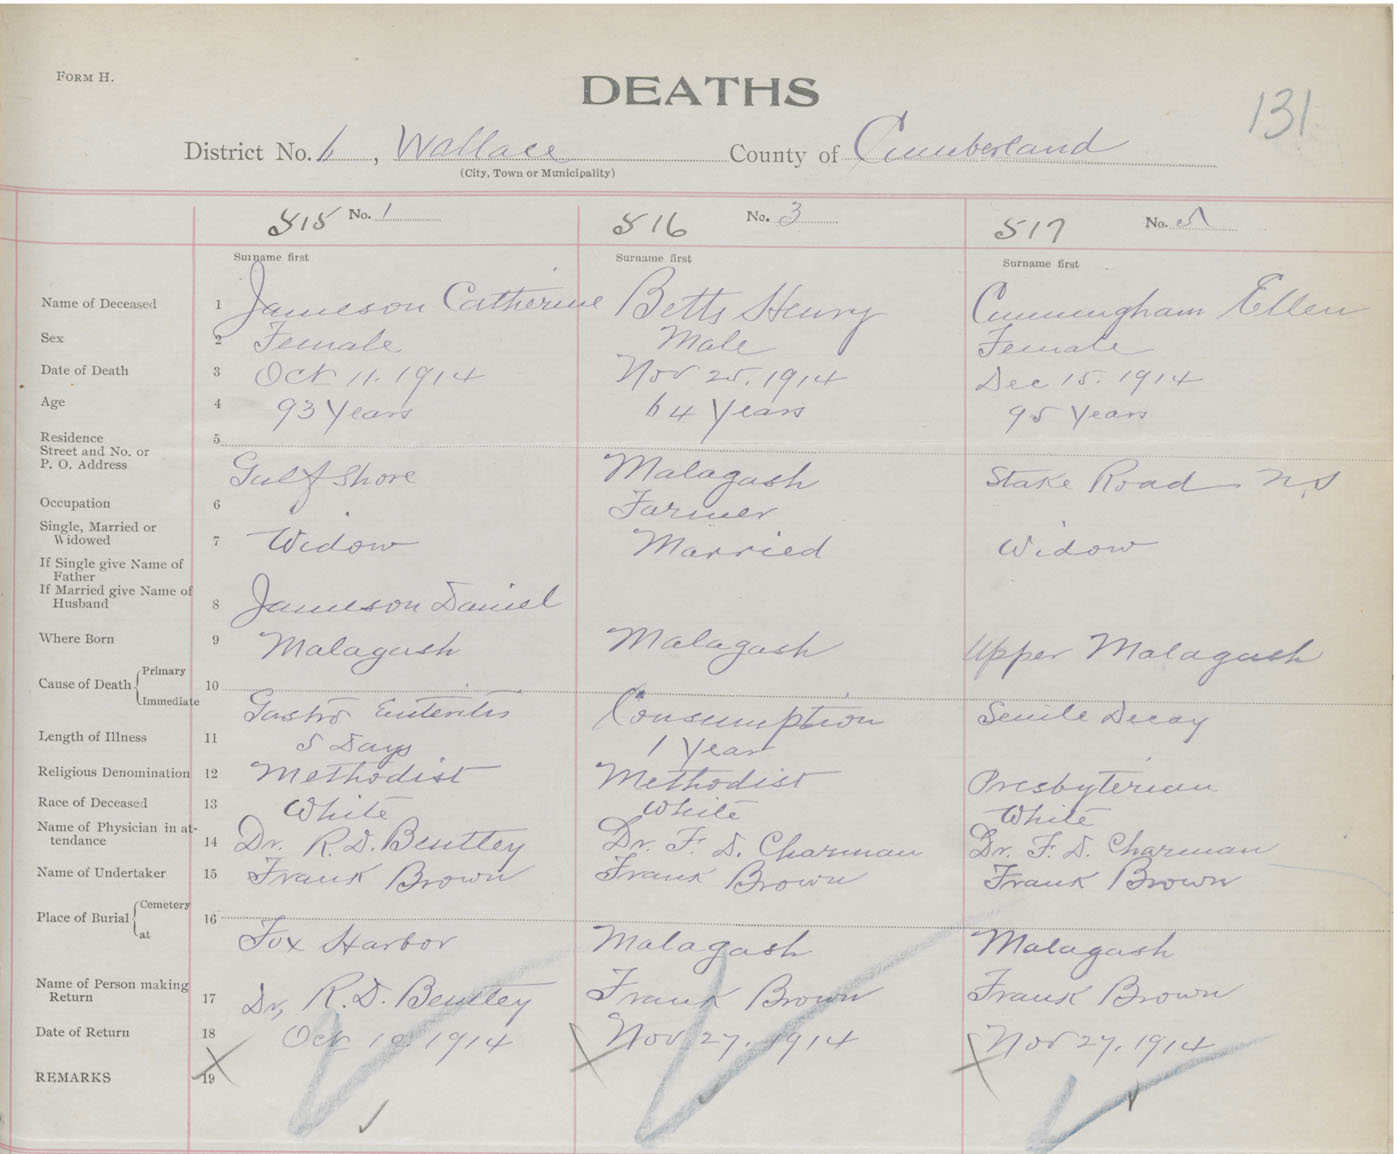 FORM H.
DEATHS
131
District No. 6, Wallace County of Cumberland
(City, Town or Municipality)
815 No. 1 816 No. 3 817 No. 5
Surname first Surname first Surname first
Name of Deceased 1 Jameson Catherine Betts Henry Cunningham Ellen
Sex 2 Female Male Female
Date of Death 3 Oct 11. 1914 Nov 25. 1914 Dec 15. 1914
Age 4 93 Years 64 Years 95 Years
Residence 5
Street and No. or
P. O. Address Gulf Shore Malagash Stake Road N.S
Occupation 6 Farmer
Single, Married or
Widowed 7 Widow Married Widow
If Single give Name of
Father
If Married give Name of
Husband 8 Jameson Daniel
Where Born 9 Malagash Malagash Upper Malagash
Cause of Death Primary 10
Immediate Gastro Enteritis Consumption Senile Decay
Length of Illness 11 5 Days 1 Year
Religious Denomination 12 Methodist Methodist Presbyterian
Race of Deceased 13 White White White
Name of Physician in at-
tendance 14 Dr. R. D. Bentley Dr. F. D. Charman Dr. F. D. Charman
Name of Undertaker 15 Frank Brown Frank Brown Frank Brown
Place of Burial Cemetery 16
at Fox Harbor Malagash Malagash
Name of Person making
Return 17 Dr, R. D. Bentley Frank Brown Frank Brown
Date of Return 18 Oct 1914 Nov 27. 1914 Nov 27. 1914
REMARKS 19